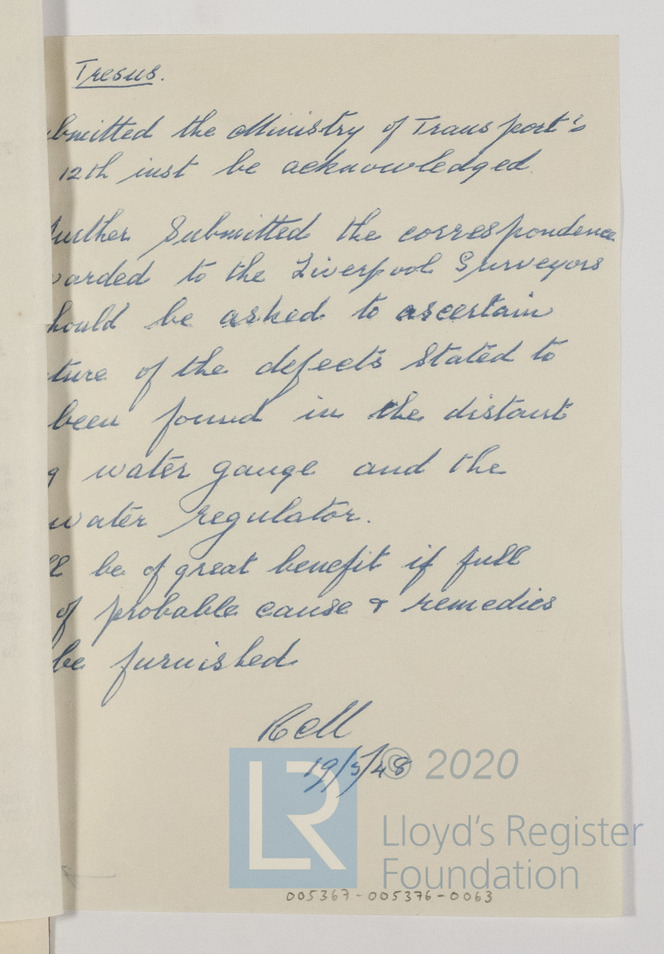 Tresus.
bmitted the Ministry of Transport's
12th inst be acknowledged.
further Submitted the correspondence
warded to the Liverpool Surveyors
hould be asked to ascertain
ture of the defects stated to
been found in the distant
g water gauge and the
water regulator.
ll be of great benefit if full
of probable cause & remedies
be furnished
19/5/48
© 2020
LR
Lloyd's Register
Foundation
005367-005376-0063